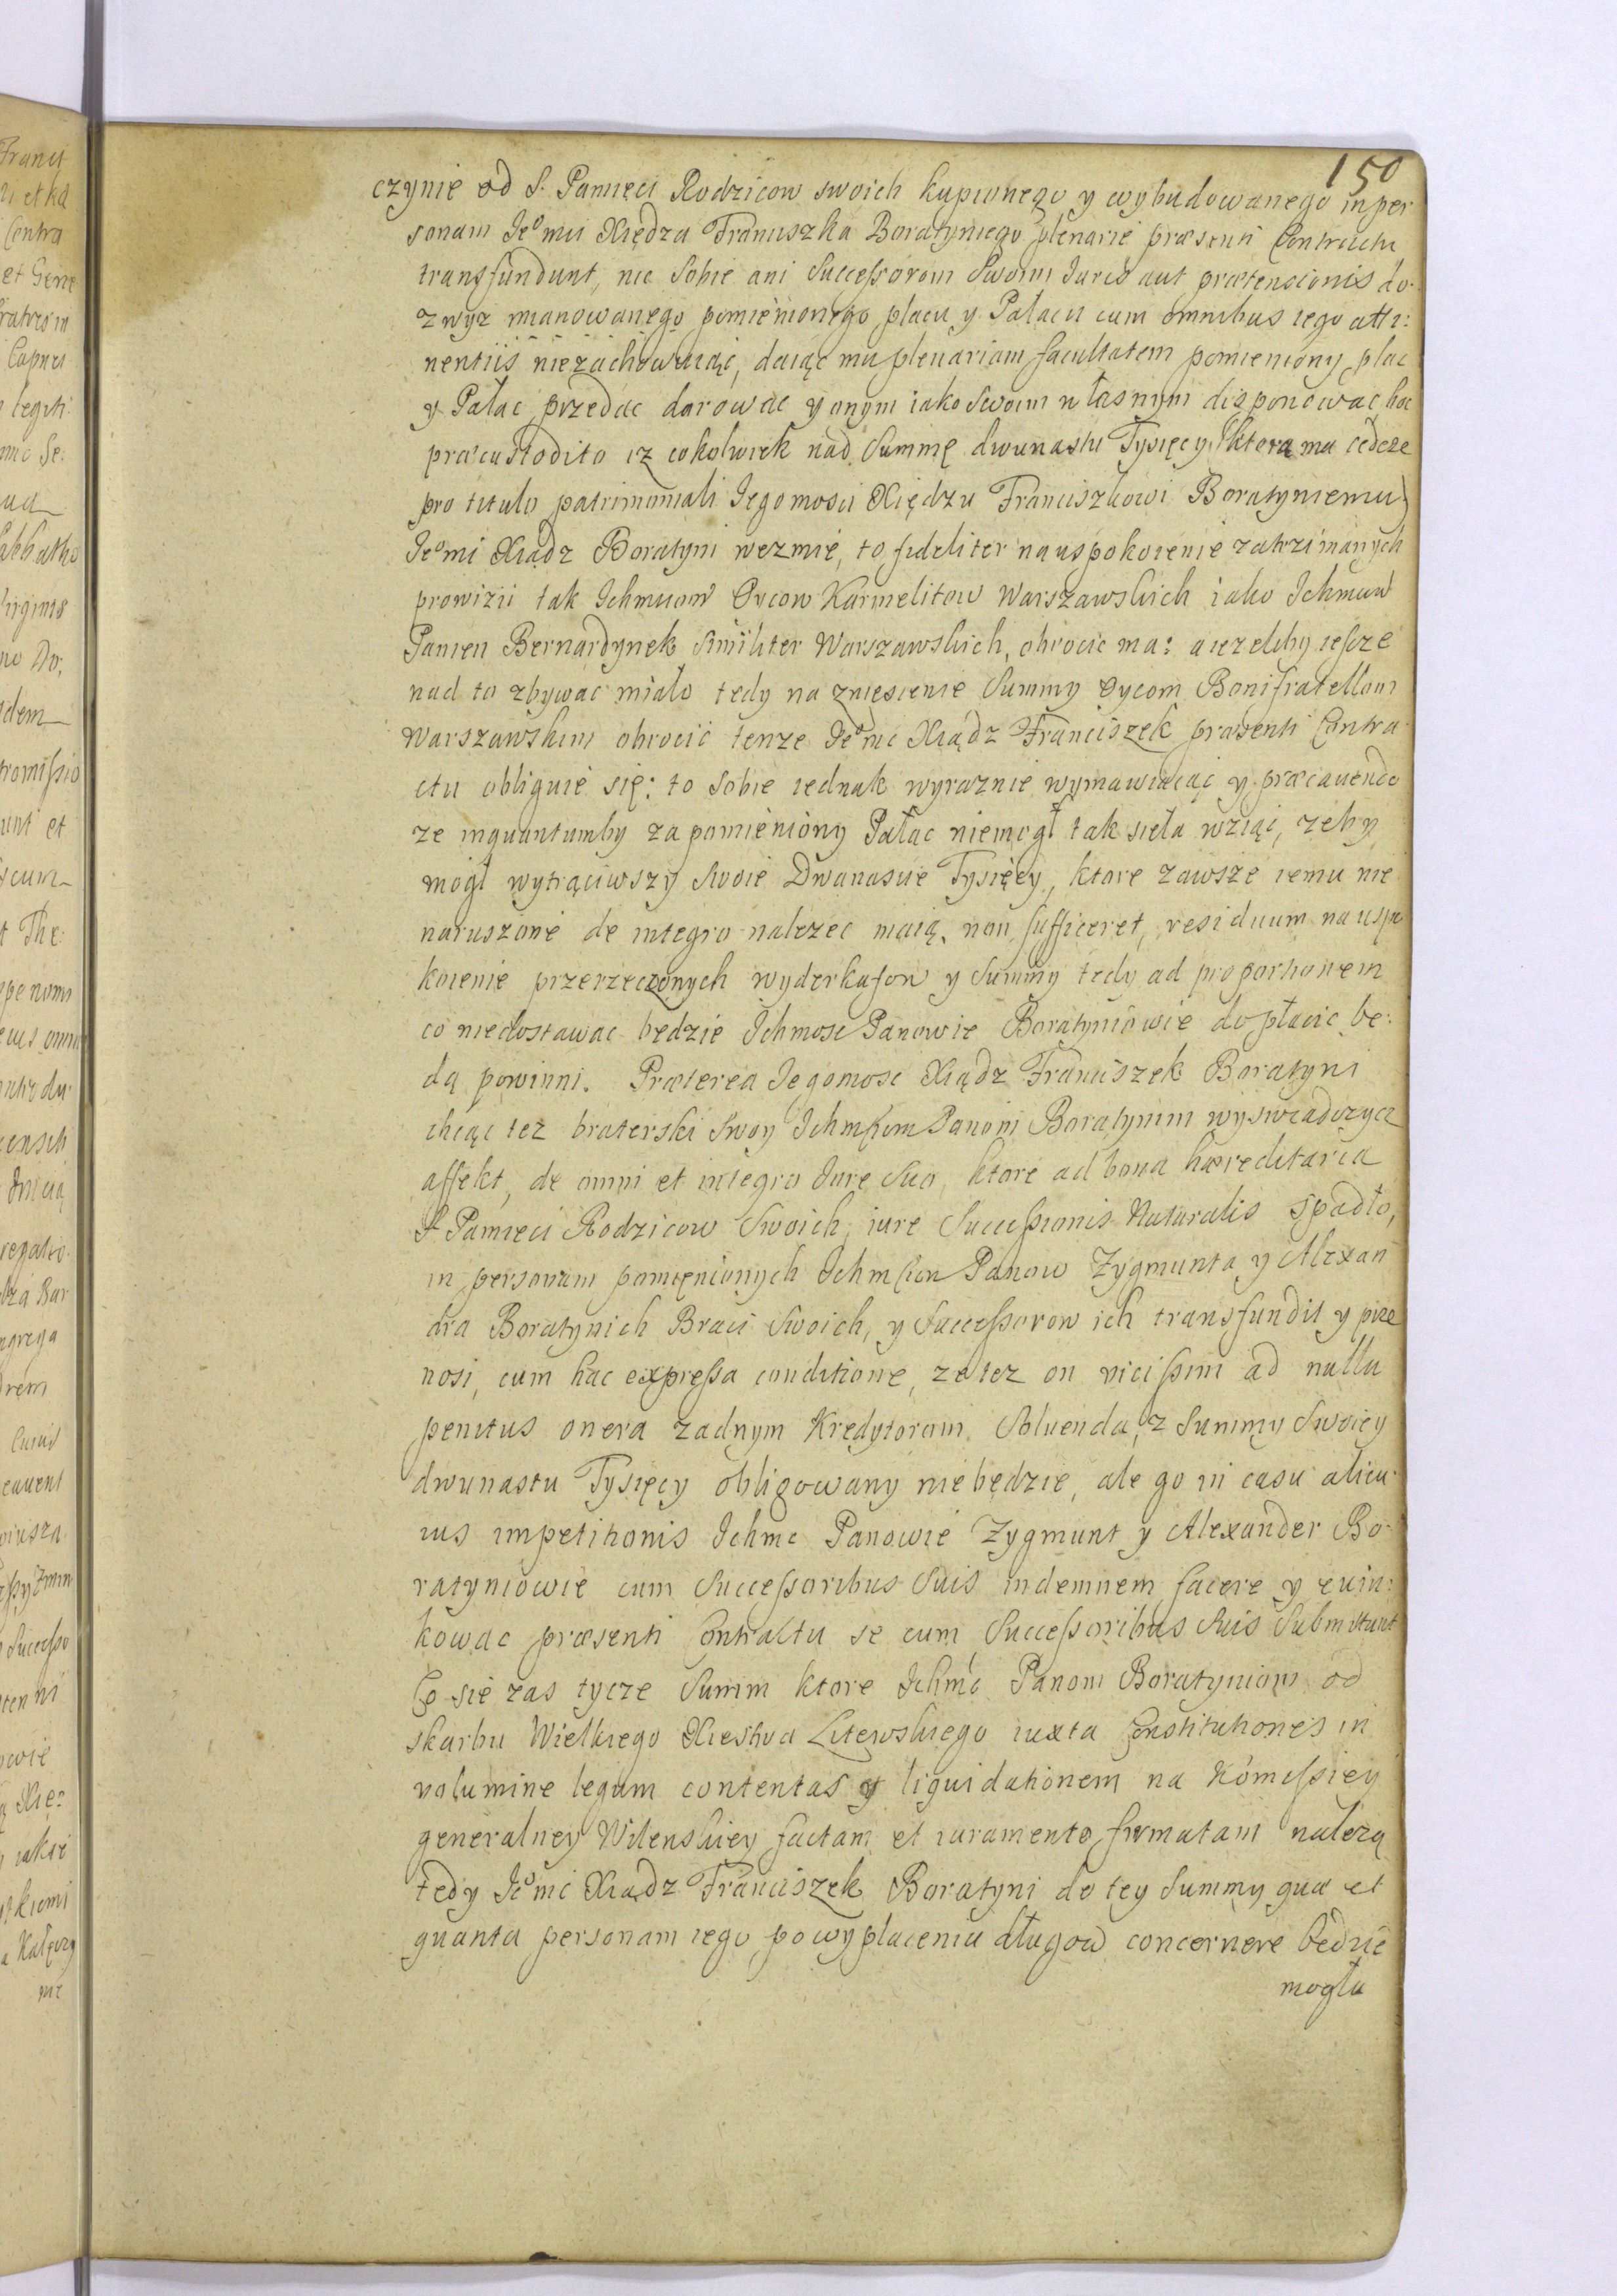 150
czynie od S. Pamięci Rodzicow swoich kupionego y wybudowanego in per
sonam Jeomci Xiędza Franciszka Boratyniego plenarie præsenti Contractu
transfundunt, nic Sobie ani Successorom Swoim Juris aut prætensionis do
zwyz mianowanego pomienionego placu y Pałacu cum omnibus iego atti:
nentiis niezachowuiąc, daiąc mu plenariam facultatem pomieniony plac
y Pałac przedac darowac y onym iako Swoim własnym disponowac, hoc
præcustodito iz cokolwiek nad Summę dwunastu Tysięcy (ktorą mu cedcze
pro titulo patrimoniali Jegomosci Xiędzu Franciszkowi Boratyniemu)
Jeomci Xiądz Boratyni wezmie, to fideliter na uspokoienie zatrzimanych
prowizii tak Ichmciow Oycow Karmelitow Warszawskich iako Ichmciow
Panien Bernardynek similiter Warszawskich, obrocic ma: a iezeliby ieszcze
nad to zbywac miało tedy na zniesienie Summy Oycom Bonifratellom
Warszawskim obrocic tenze Jeomc Xiądz Franciszek præsenti Contra
ctu obliguie się: to Sobie iednak wyraznie wymawiaiąc y præcavendo
ze inquantumby za pomieniony Pałac niemogł tak sieła wziąć, zeby
mogł wytrąciwszy Swoie Dwanascie Tysięcy, ktore zawsze iemu nie
naruszone de integro nalezec maią, non sufficeret, residuum na uspo
koienie przerzeczonych wyderkafow y Summy tedy ad proportionem
co niedostawac będzie Ichmosc Panowie Boratyniowie dopłacic bę:
dą powinni. Præterea Jegomosc Xiądz Franciszek Boratyni
chcąc tez braterski Swoy Ichmsciom Panom Boratynim wyswiadczyc
affekt, de omni et integro Jure Suo, ktore ad bona hæreditaria
S Pamięci Rodzicow Swoich, iure Successionis Naturalis spadło,
in personam pomienionych Ichmsciow Panow Zygmunta y Alexan
dra Boratynich Braci Swoich, y Successorow ich transfundit y prze
nosi, cum hac expressa conditione, ze tez on vicissim ad nulla
penitus onera zadnym Kredytorom Soluenda, z Summy Swoiey
dwunastu Tysięcy obligowany nie będzie, ale go in casu alicu
ius impetitionis Ichmc Panowie Zygmunt y Alexander Bo-
ratyniowie cum Successoribus Suis indemnem facere y ewin:
kowac præsenti Contractu se cum Successoribus Suis Submittunt
Co się zas tycze Summ ktore Ichmc Panom Boratyniom od
skarbu Wielkiego Xiestwa Litewskiego iuxta Constitutiones in
volumine legum contentas y liquidationem na Komessiey
generalney Wilenskiey factam et iuramento firmatam nalezą
tedy Jeomc Xiądz Franciszek Boratyni do tey Summy quæ et
quanta personam iego po wypłaceniu długow concernere będzie
mogła